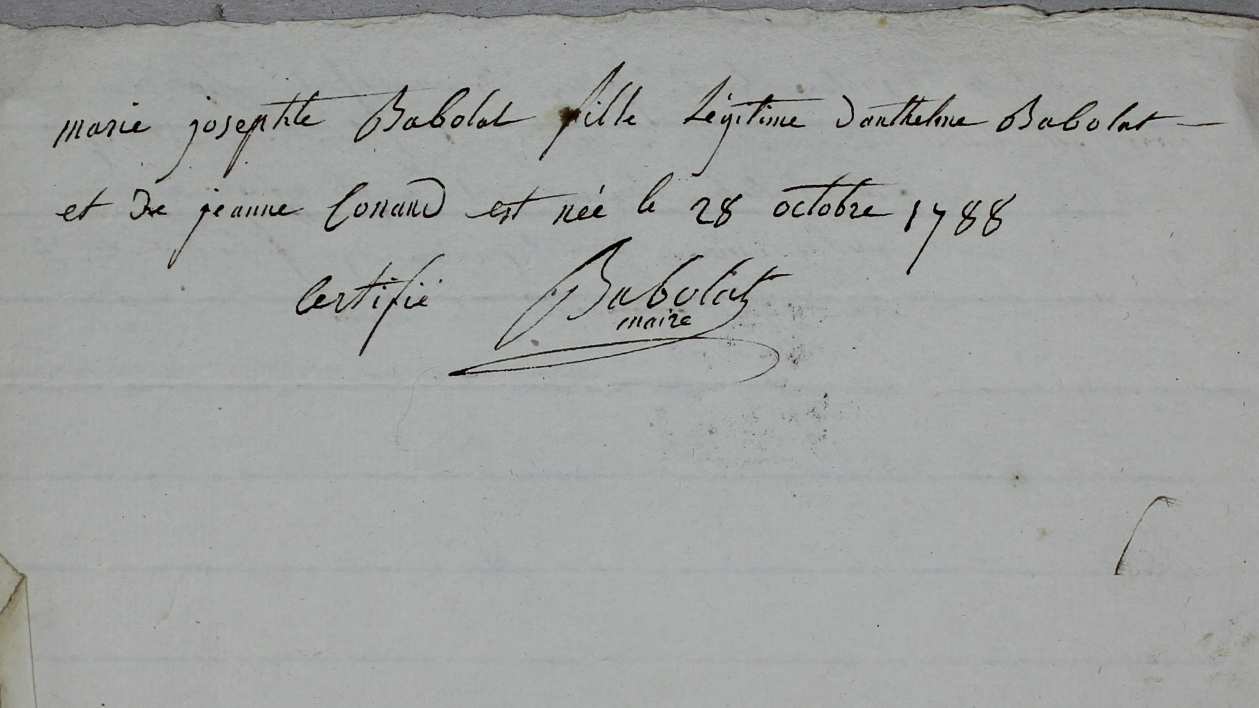 marie josephte Babolat fille Légitime Danthelme Babolat —
et De jeanne Conand est née le 28 octobre 1788
Certifié Babolat
maire